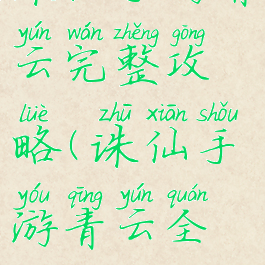 yún wán zhěng gōng
云完整攻
lüè zhū xiān shǒu
略(诛仙手
yóu qīng yún quán
游青云全